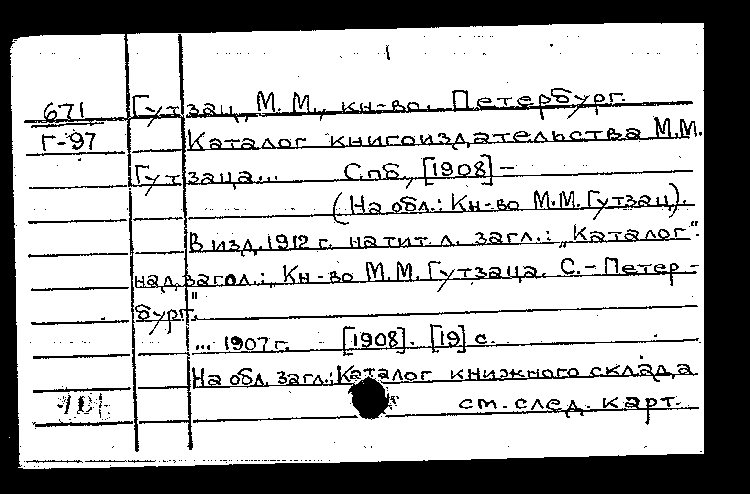 1
671 Гутзац, М. М., кн-во. Петербург.
Г-97 Каталог книгоиздательства М.М.
Гутзаца... Спб., [1908] –
(На обл.: Кн-во М.М. Гутзац).
В изд. 1912 г. на тит. л. загл.: „Каталог".
над загол.: „Кн-во М.М. Гутзаца. С.-Петер-
бург."
... 1907 г. [1908]. [19] с.
На обл. загл.: Каталог книжного склада
см. след. карт.